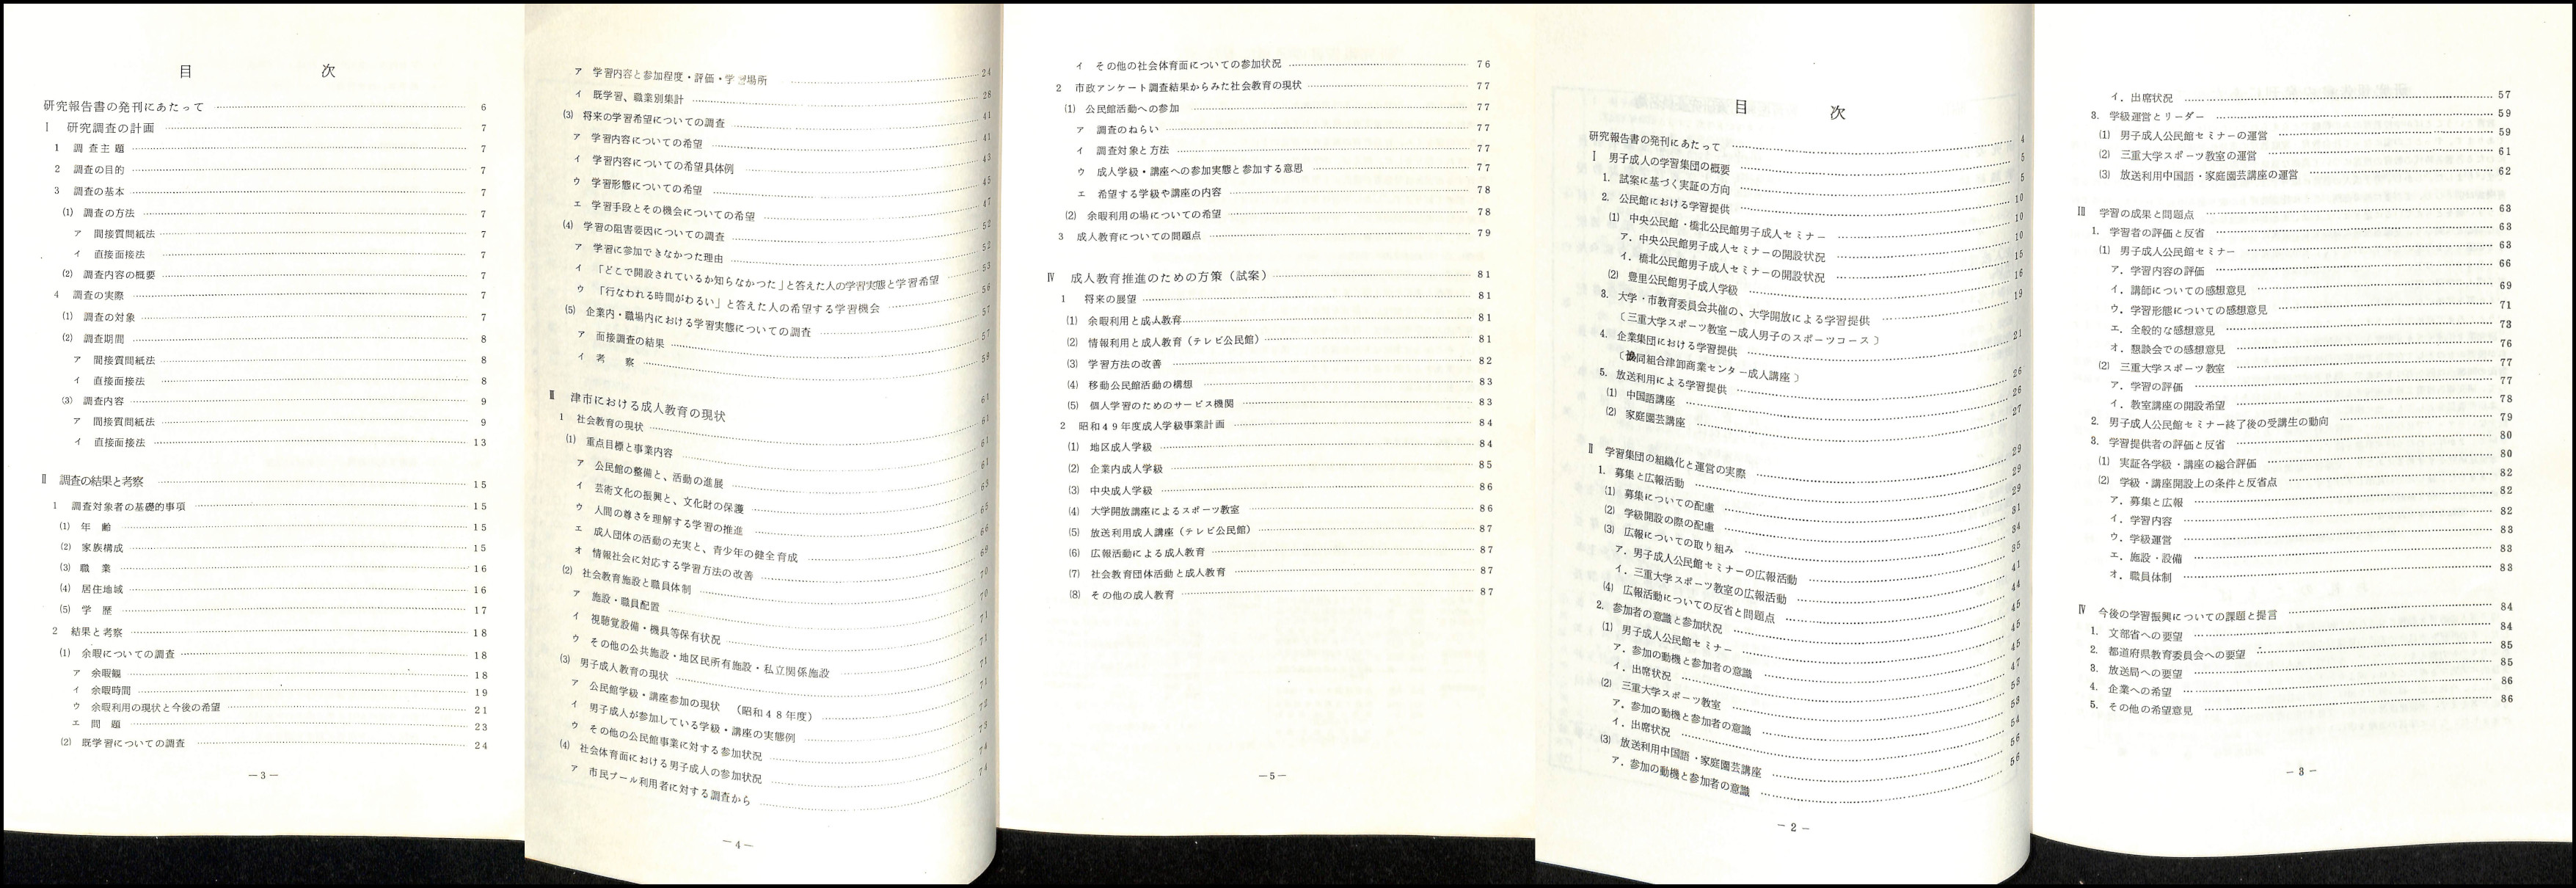 目 次
研究報告書の発刊にあたって 6
Ⅰ 研究調査の計画 7
1 調査主題 7
2 調査の目的 7
3 調査の基本 7
(1) 調査の方法 7
ア 間接質問紙法 7
イ 直接面接法 7
(2) 調査内容の概要 7
4 調査の実際 7
(1) 調査の対象 7
(2) 調査期間 8
ア 間接質問紙法 8
イ 直接面接法 8
(3) 調査内容 9
ア 間接質問紙法 9
イ 直接面接法 13
Ⅱ 調査の結果と考察 15
1 調査対象者の基礎的事項 15
(1) 年 齢 15
(2) 家族構成 15
(3) 職 業 16
(4) 居住地域 16
(5) 学 歴 17
2 結果と考察 18
(1) 余暇についての調査 18
ア 余暇観 18
イ 余暇時間 19
ウ 余暇利用の現状と今後の希望 21
エ 問 題 23
(2) 既学習についての調査 24
－3－
ア 学習内容と参加程度・評価・学習場所 24
イ 既学習、職業別集計 28
(3) 将来の学習希望についての調査 41
ア 学習内容についての希望 41
イ 学習内容についての希望具体例 43
ウ 学習形態についての希望 45
エ 学習手段とその機会についての希望 47
(4) 学習の阻害要因についての調査 52
ア 学習に参加できなかつた理由 52
イ 「どこで開設されているか知らなかつた」と答えた人の学習実態と学習希望 53
ウ 「行なわれる時間がわるい」と答えた人の希望する学習機会 56
(5) 企業内・職場内における学習実態についての調査 57
ア 面接調査の結果 57
イ 考 察 59
Ⅲ 津市における成人教育の現状 61
1 社会教育の現状 61
(1) 重点目標と事業内容 61
ア 公民館の整備と、活動の進展 61
イ 芸術文化の振興と、文化財の保護 63
ウ 人間の尊さを理解する学習の推進 65
エ 成人団体の活動の充実と、青少年の健全育成 66
オ 情報社会に対応する学習方法の改善 69
(2) 社会教育施設と職員体制 70
ア 施設・職員配置 70
イ 視聴覚設備・機具等保有状況 71
ウ その他の公共施設・地区民所有施設・私立関係施設 71
(3) 男子成人教育の現状 71
ア 公民館学級・講座参加の現状 (昭和48年度) 71
イ 男子成人が参加している学級・講座の実態例 72
ウ その他の公民館事業に対する参加状況 73
(4) 社会体育面における男子成人の参加状況 74
ア 市民プール利用者に対する調査から 74
－4－
イ その他の社会体育面についての参加状況 76
2 市政アンケート調査結果からみた社会教育の現状 77
(1) 公民館活動への参加 77
ア 調査のねらい 77
イ 調査対象と方法 77
ウ 成人学級・講座への参加実態と参加する意思 77
エ 希望する学級や講座の内容 78
(2) 余暇利用の場についての希望 78
3 成人教育についての問題点 79
Ⅳ 成人教育推進のための方策(試案) 81
1 将来の展望 81
(1) 余暇利用と成人教育 81
(2) 情報利用と成人教育(テレビ公民館) 81
(3) 学習方法の改善 82
(4) 移動公民館活動の構想 83
(5) 個人学習のためのサービス機関 83
2 昭和49年度成人学級事業計画 84
(1) 地区成人学級 84
(2) 企業内成人学級 85
(3) 中央成人学級 86
(4) 大学開放講座によるスポーツ教室 86
(5) 放送利用成人講座(テレビ公民館) 87
(6) 広報活動による成人教育 87
(7) 社会教育団体活動と成人教育 87
(8) その他の成人教育 87
－5－
目 次
研究報告書の発刊にあたって 4
Ⅰ 男子成人の学習集団の概要 5
1. 試案に基づく実証の方向 5
2. 公民館における学習提供 10
(1) 中央公民館・橋北公民館男子成人セミナー 10
ア. 中央公民館男子成人セミナーの開設状況 10
イ. 橋北公民館男子成人セミナーの開設状況 15
(2) 豊里公民館男子成人学級 16
3. 大学・市教育委員会共催の、大学開放による学習提供 19
〔三重大学スポーツ教室－成人男子のスポーツコース〕
4. 企業集団における学習提供 21
〔協同組合津卸商業センター成人講座〕
5. 放送利用による学習提供 26
(1) 中国語講座 26
(2) 家庭園芸講座 27
Ⅱ 学習集団の組織化と運営の実際 29
1. 募集と広報活動 29
(1) 募集についての配慮 29
(2) 学級開設の際の配慮 31
(3) 広報についての取り組み 34
ア. 男子成人公民館セミナーの広報活動 35
イ. 三重大学スポーツ教室の広報活動 41
(4) 広報活動についての反省と問題点 44
2. 参加者の意識と参加状況 45
(1) 男子成人公民館セミナー 45
ア. 参加の動機と参加者の意識 45
イ. 出席状況 47
(2) 三重大学スポーツ教室 53
ア. 参加の動機と参加者の意識 53
イ. 出席状況 54
(3) 放送利用中国語・家庭園芸講座 56
ア. 参加の動機と参加者の意識 56
－2－
イ. 出席状況 57
3. 学級運営とリーダー 59
(1) 男子成人公民館セミナーの運営 59
(2) 三重大学スポーツ教室の運営 61
(3) 放送利用中国語・家庭園芸講座の運営 62
Ⅲ 学習の成果と問題点 63
1. 学習者の評価と反省 63
(1) 男子成人公民館セミナー 63
ア. 学習内容の評価 66
イ. 講師についての感想意見 69
ウ. 学習形態についての感想意見 71
エ. 全般的な感想意見 73
オ. 懇談会での感想意見 76
(2) 三重大学スポーツ教室 77
ア. 学習の評価 77
イ. 教室講座の開設希望 78
2. 男子成人公民館セミナー終了後の受講生の動向 79
3. 学習提供者の評価と反省 80
(1) 実証各学級・講座の総合評価 80
(2) 学級・講座開設上の条件と反省点 82
ア. 募集と広報 82
イ. 学習内容 82
ウ. 学級運営 83
エ. 施設・設備 83
オ. 職員体制 83
Ⅳ 今後の学習振興についての課題と提言 84
1. 文部省への要望 84
2. 都道府県教育委員会への要望 85
3. 放送局への要望 85
4. 企業への希望 86
5. その他の希望意見 86
－3－